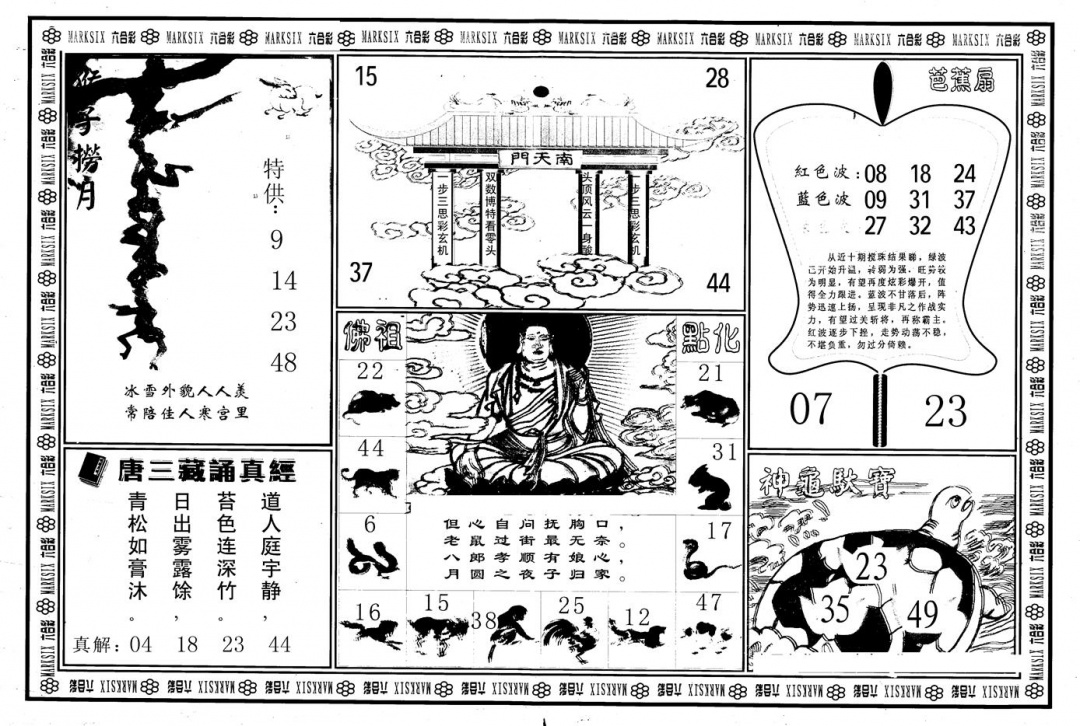 MARKSIX 六合彩 MARKSIX 六合彩 MARKSIX 六合彩 MARKSIX 六合彩 MARKSIX 六合彩 MARKSIX 六合彩 MARKSIX 六合彩 MARKSIX 六合彩 MARKSIX 六合彩 MARKSIX 六合彩
猴子捞月
特供：
9
14
23
48
冰雪外貌人人羡
常陪佳人寒宫里
15
28
南天門
一步三思彩玄机
双数博特看零头
头顶风云一身酸
一步三思彩玄机
37
44
芭蕉扇
紅色波：08 18 24
藍色波 09 31 37
27 32 43
从近十期搅珠结果睇，绿波
已开始升温，转弱为强，旺势较
为明显，有望再度炫彩爆开，值
得全力跟进。蓝波不甘落后，阵
势迅速上扬，呈现非凡之作战实
力，有望过关斩将，再称霸主。
红波逐步下挫，走势动荡不稳，
不堪负重，勿过分倚赖。
07
23
唐三藏誦真經
道人庭宇静，
苔色连深竹。
日出雾露馀，
青松如膏沐。
真解：04 18 23 44
佛祖
點化
22
21
44
31
6
17
但心自问抚胸口，
老鼠过街最无奈。
八郎孝顺有娘心，
月圆之夜子归家。
16
15
38
25
12
47
神龜馱寶
23
35
49
MARKSIX 六合彩 MARKSIX 六合彩 MARKSIX 六合彩 MARKSIX 六合彩 MARKSIX 六合彩 MARKSIX 六合彩 MARKSIX 六合彩 MARKSIX 六合彩 MARKSIX 六合彩 MARKSIX 六合彩